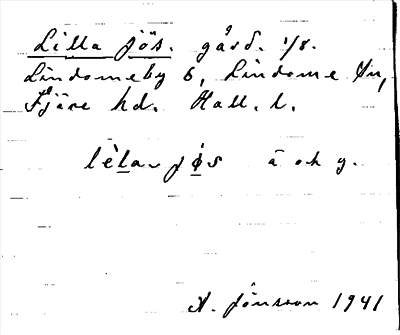 Lilla Jös. gård. 1/8.
Lindomeby 6, Lindome sn,
Fjäre hd. Hall. l.
lèla- jös ä och y.
A. Jönsson 1941